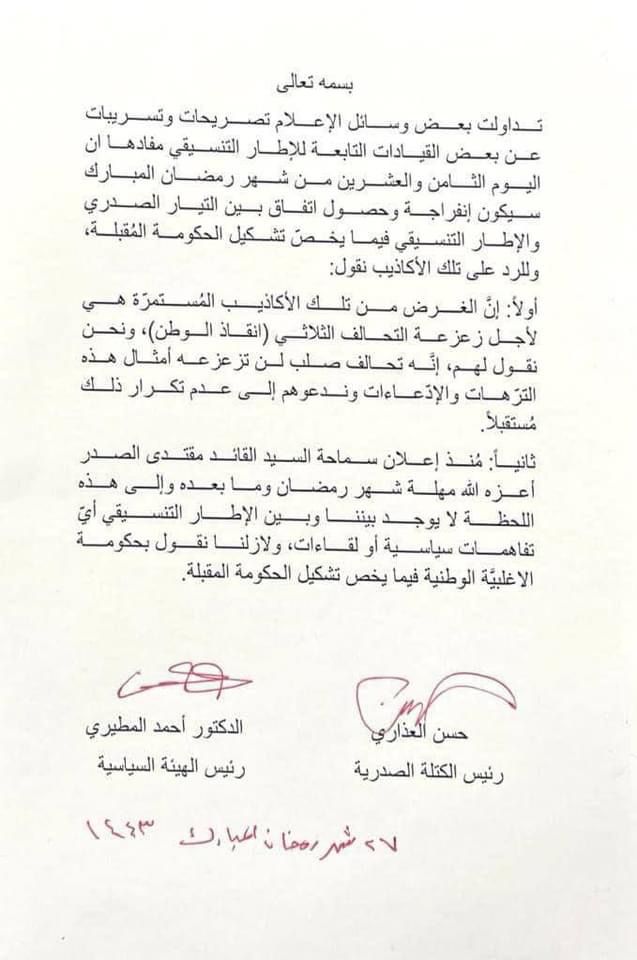 بسمه تعالى
تداولت بعض وسائل الإعلام تصريحات وتسريبات
عن بعض القيادات التابعة للإطار التنسيقي مفادها ان
اليوم الثامن والعشرين من شهر رمضان المبارك
سيكون إنفراجة وحصول اتفاق بين التيار الصدري
والإطار التنسيقي فيما يخصّ تشكيل الحكومة المُقبلة،
وللرد على تلك الأكاذيب نقول:
أولاً: إنَّ الغرض من تلك الأكاذيب المُستمرّة هي
لأجل زعزعة التحالف الثلاثي (انقاذ الوطن)، ونحن
نقول لهم، إنَّه تحالف صلب لن تزعزعه أمثال هذه
الترّهات والإدّعاءات وندعوهم إلى عدم تكرار ذلك
مُستقبلاً.
ثانياً: مُنذ إعلان سماحة السيد القائد مقتدى الصدر
أعزه الله مهلة شهر رمضان وما بعده وإلى هذه
اللحظة لا يوجد بيننا وبين الإطار التنسيقي أيّ
تفاهمات سياسية أو لقاءات، ولازلنا نقول بحكومة
الاغلبيَّة الوطنية فيما يخص تشكيل الحكومة المقبلة.
حسن العذاري
رئيس الكتلة الصدرية
الدكتور أحمد المطيري
رئيس الهيئة السياسية
٢٧ شهر رمضان المبارك ١٤٤٣